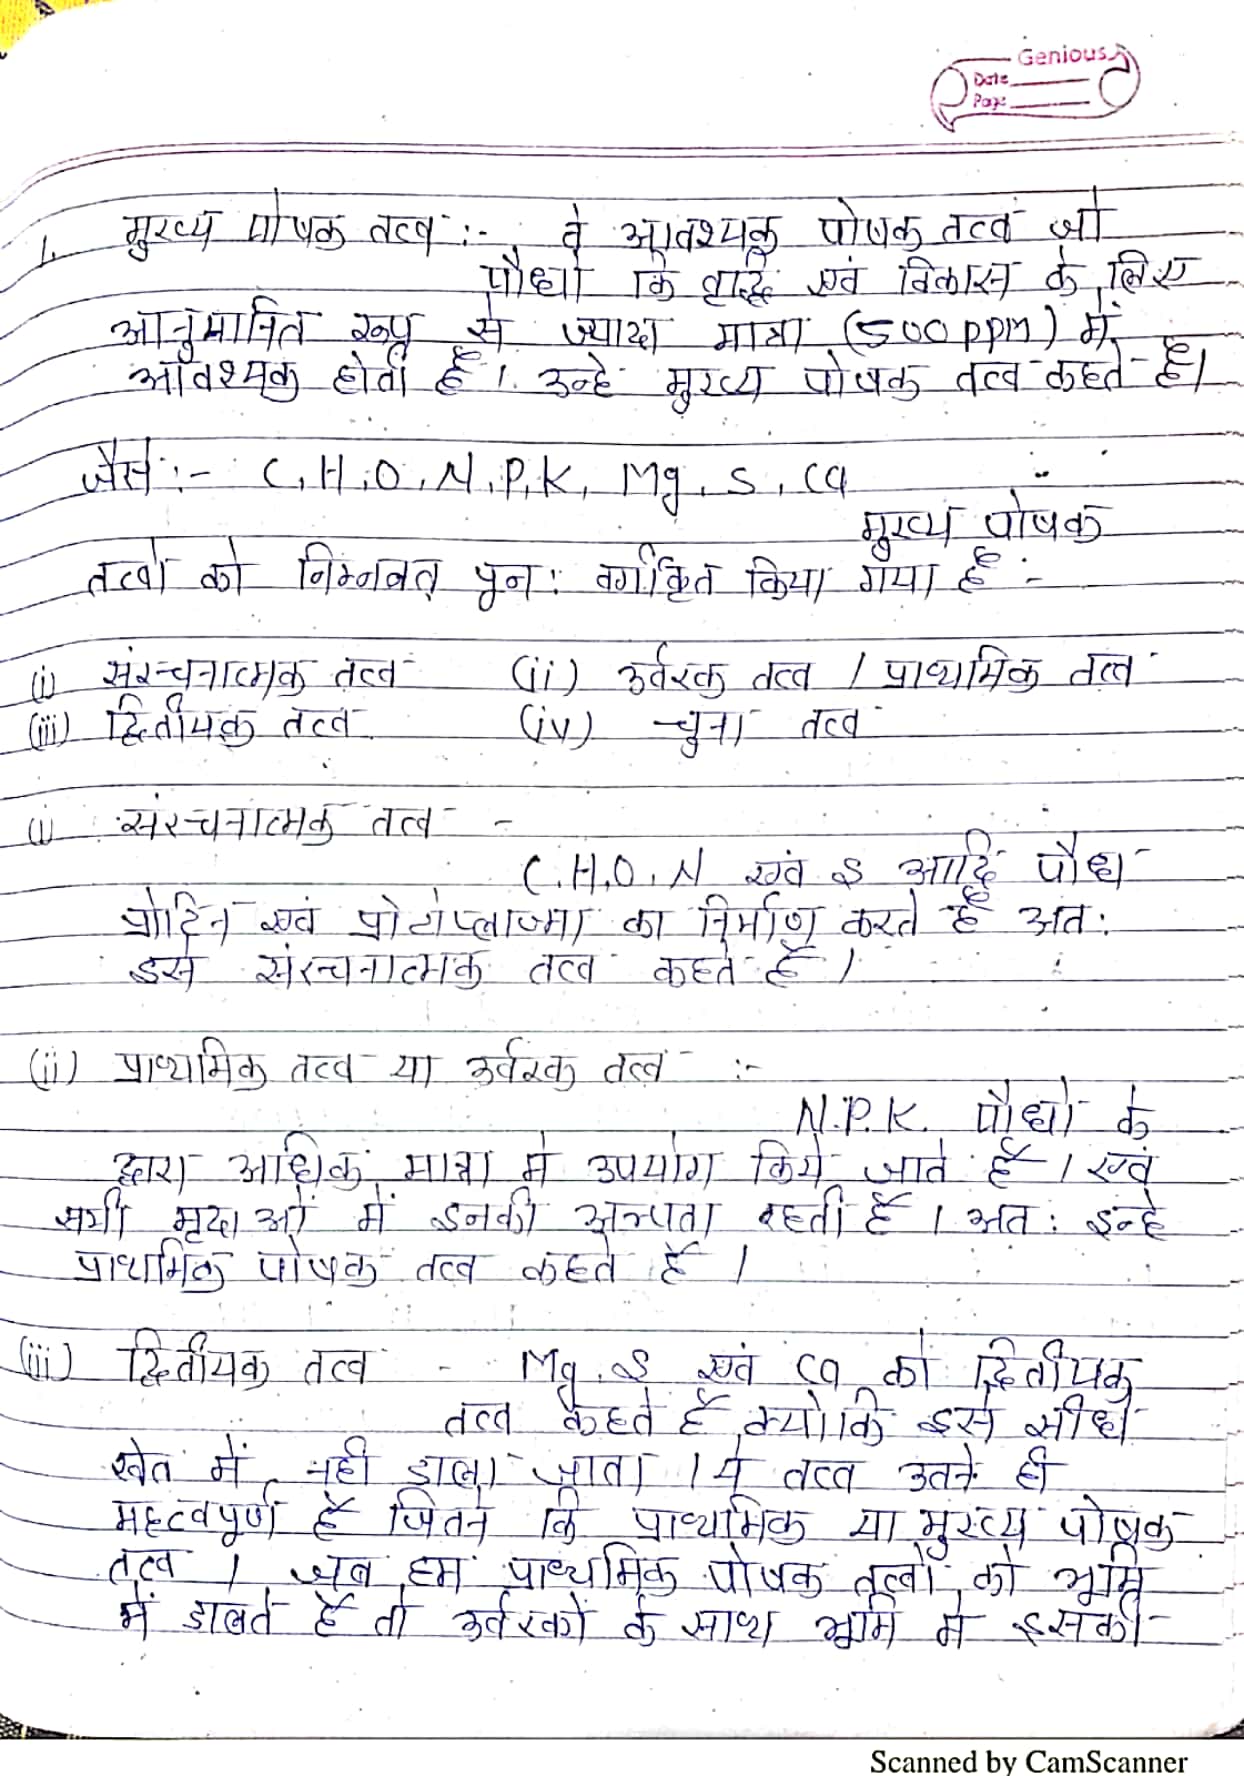 Genious
Date
Page
1. मुख्य पोषक तत्व :- वे आवश्यक पोषक तत्व जो
पौधों कि वृद्धि एवं विकास के लिए
आनुमानित रूप से ज्यादा मात्रा (500 ppm) में
आवश्यक होती है । उन्हे मुख्य पोषक तत्व कहते है।
जैसे :- C, H, O, N, P, K, Mg, S, Ca
मुख्य पोषक
तत्वों को निम्नवत् पुन: वर्गीकृत किया गया है :-
(i) संरचनात्मक तत्व (ii) उर्वरक तत्व / प्राथमिक तत्व
(iii) द्वितीयक तत्व (iv) चुना तत्व
(i) संरचनात्मक तत्व -
C, H, O, N एवं S आदि पौधे
प्रोटिन एवं प्रोटोप्लाज्मा का निर्माण करते है अत:
इसे संरचनात्मक तत्व कहते है ।
(ii) प्राथमिक तत्व या उर्वरक तत्व :-
N.P.K. पौधों के
द्वारा अधिक मात्रा मे उपयोग किये जाते है । एवं
सभी मृदाओं में इनकी अल्पता रहती है । अत: इन्हे
प्राथमिक पोषक तत्व कहते है ।
(iii) द्वितीयक तत्व - Mg, S एवं Ca को द्वितीयक
तत्व कहते है क्योकि इसे सीधे
खेत में नही डाला जाता । ये तत्व उतने ही
महत्वपूर्ण है जितने कि प्राथमिक या मुख्य पोषक
तत्व । जब हम प्राथमिक पोषक तत्वों को भूमि
में डालते है तो उर्वरकों के साथ भूमि मे इसकी
Scanned by CamScanner